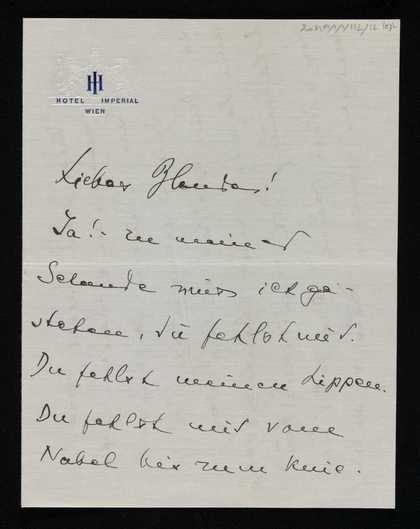 HOTEL IMPERIAL
WIEN
Lieber Blonder!
Ja! - zu meiner
Schande muss ich ge-
stehen, du fehlst mir.
Du fehlst meinen Lippen.
Du fehlst mir vom
Nabel bis zum Knie.